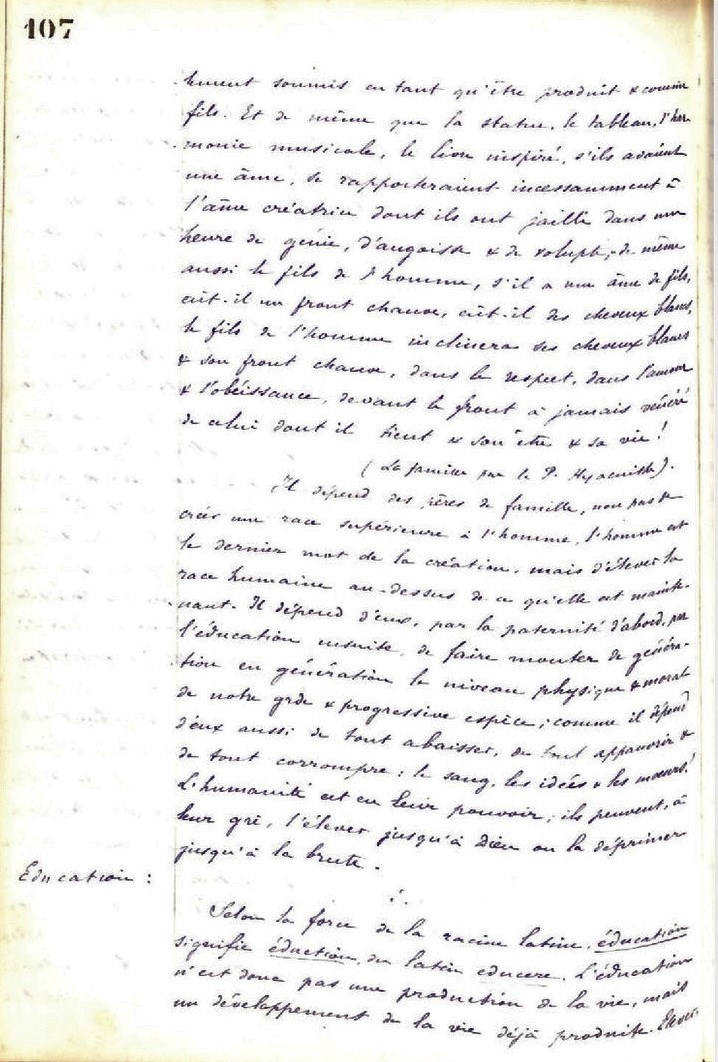 107
hment soumis en tant qu'être produit & comme
fils. Et de même que la statue, le tableau, l'har
monie musicale, le livre inspiré, s'ils avaient
une âme, se rapporteraient incessamment à
l'âme créatrice dont ils ont jailli dans une
heure de génie, d'angoisse & de volupté, de même
aussi le fils de l'homme, s'il a une âme de fils,
eût-il un front chauve, eût-il des cheveux blancs,
le fils de l'homme inclinera ses cheveux blancs
& son front chauve, dans le respect, dans l'amour
& l'obéissance, devant le front à jamais vénéré
de celui dont il tient & son être & sa vie !
(La famille par le P. Hyacinthe).
Il dépend des pères de famille, non pas de
créer une race supérieure à l'homme, l'homme est
le dernier mot de la création, mais d'élever la
race humaine au-dessus de ce qu'elle est mainte-
nant. Il dépend d'eux, par la paternité d'abord, par
l'éducation ensuite, de faire monter de généra-
tion en génération le niveau physique & moral
de notre grde & progressive espèce ; comme il dépend
d'eux aussi de tout abaisser, de tout appauvrir &
de tout corrompre : le sang, les idées & les mœurs !
L'humanité est en leur pouvoir ; ils peuvent, à
leur gré, l'élever jusqu'à Dieu ou la déprimer
jusqu'à la brute.
Education :
Selon la force de la racine latine, éducation
signifie éduction, du latin educere. L'éducation
n'est donc pas une production de la vie, mais
un développement de la vie déjà produite. Elever